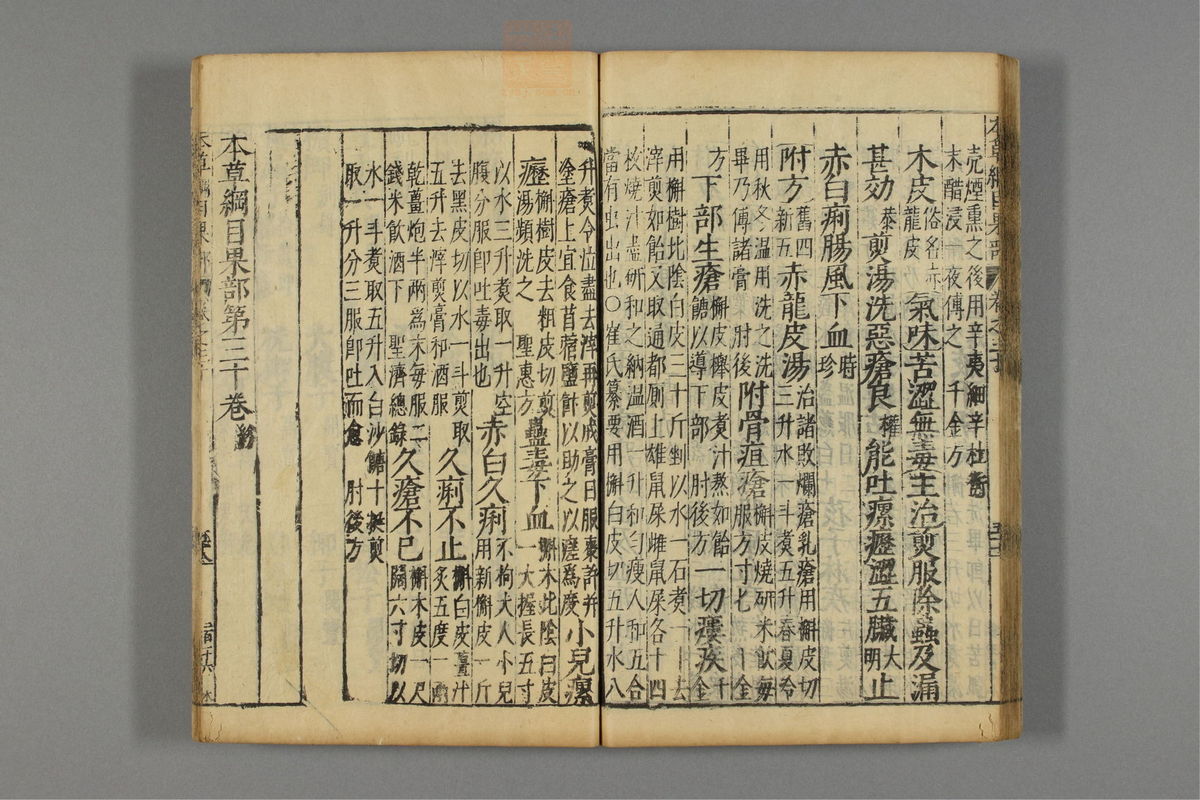 本草綱目果部 卷之三十
殼煙熏之後用辛夷細辛杜衡
末醋浸一夜傅之 千金方
木皮俗名赤龍皮 氣味苦澀無毒主治煎服除蟲及漏
甚効恭煎湯洗惡瘡良權能吐瘰癧澀五臟大明止
赤白痢腸風下血時珍
附方舊四新五 赤龍皮湯治諸敗爛瘡乳瘡用槲皮切三升水一斗煮五升春夏冷
用秋冬温用洗之洗畢乃傅諸膏 肘後 附骨疽瘡槲皮燒研米飲每服方寸匕 千金
方 下部生瘡槲皮櫸皮煮汁熬如飴糖以導下部 肘後方 一切瘻疾千金
用槲樹北陰白皮三十斤剉以水一石煮一斗去
滓煎如飴又取通都厠上雄鼠屎雌鼠屎各十四
枚燒汁盡研和之納温酒一升和勻瘦人和五合
當有虫出也○崔氏纂要用槲白皮切五升水八
升煮令泣盡去滓再煎成膏日服棗許并
塗瘡上宜食苜蓿鹽飯以助之以瘥爲度 小兒瘰
癧槲樹皮去粗皮切煎湯頻洗之 聖惠方 蠱毒下血槲木北陰白皮一大握長五寸
以水三升煮取一升空腹分服即吐毒出也 赤白久痢不拘大人小兒用新槲皮一斤
去黑皮切以水一斗煎取五升去滓煎膏和酒服 久痢不止槲白皮薑汁炙五度一兩
乾薑炮半兩爲末每服二錢米飲酒下 聖濟總錄 久瘡不已槲木皮一尺闊六寸切以
水一斗煮取五升入白沙糖十挺煎
取一升分三服即吐而愈 肘後方
本草綱目果部第三十卷終